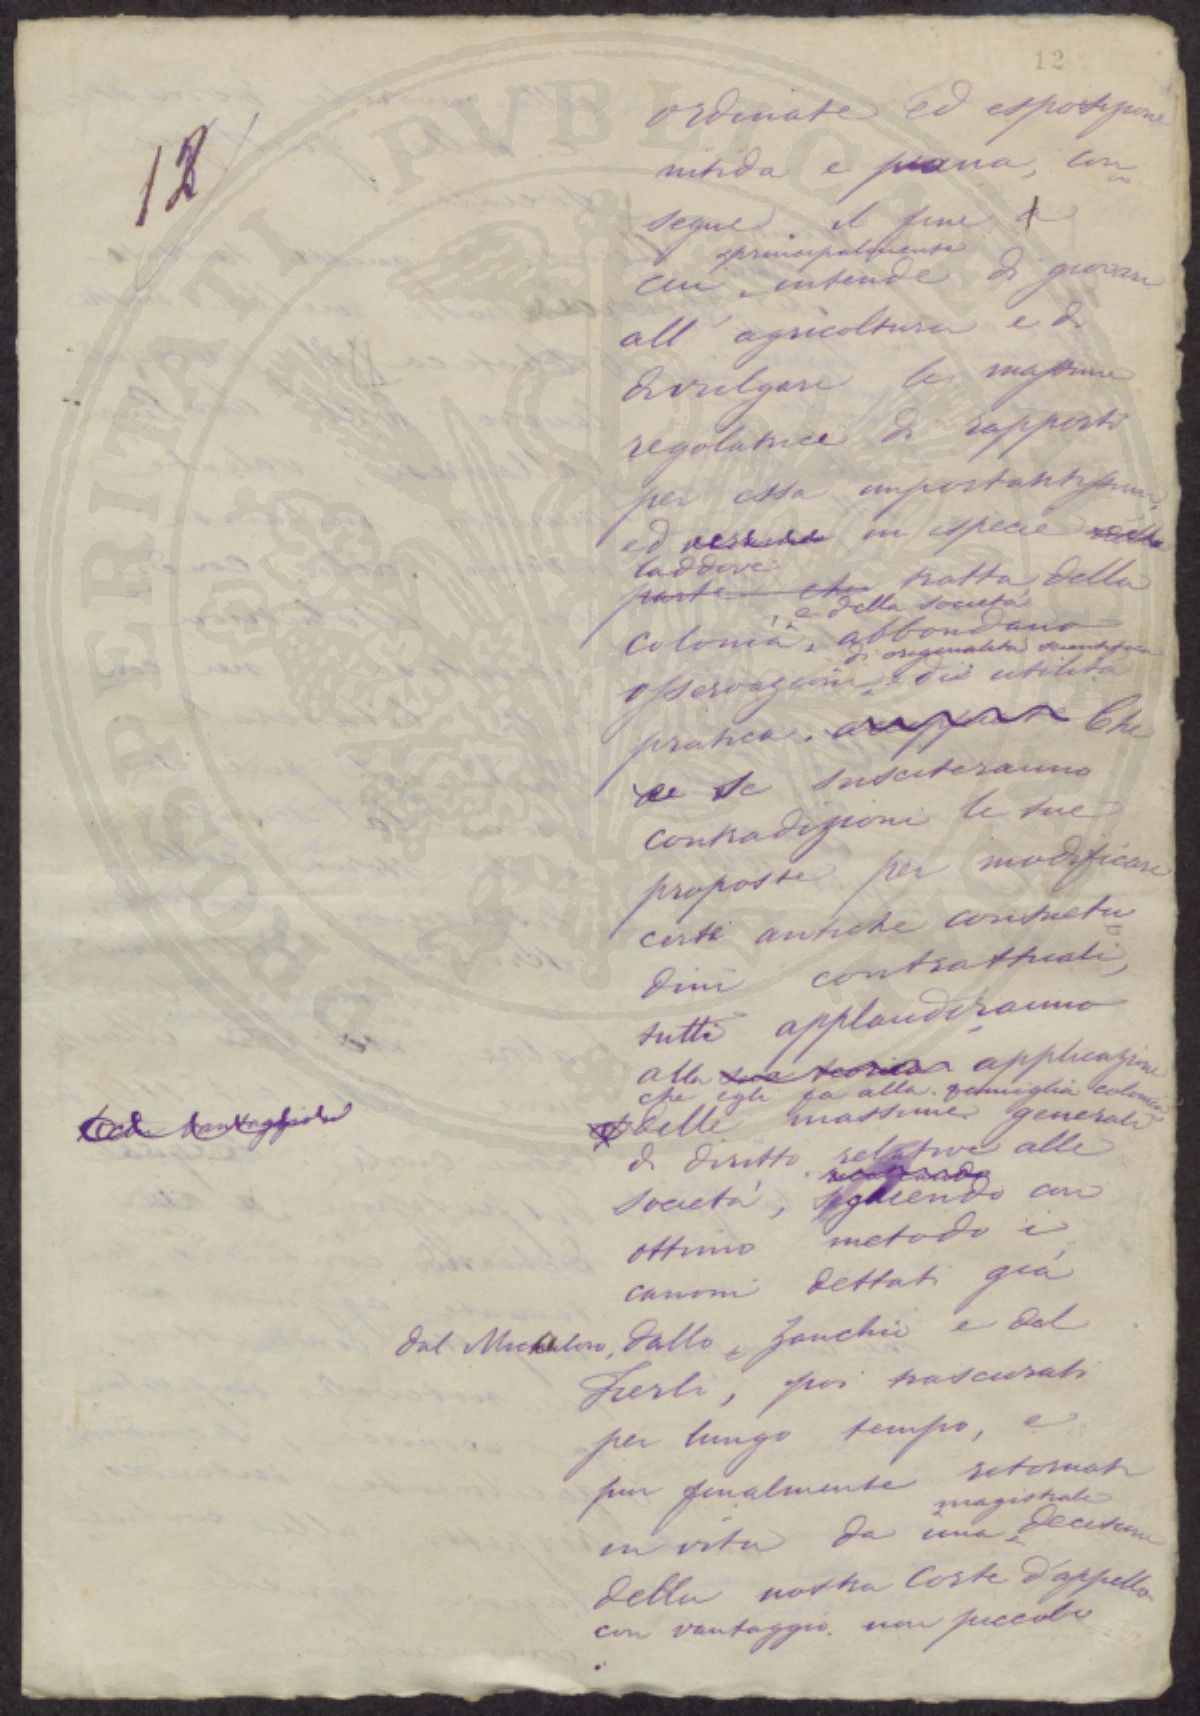 12
12
ordinate ed esposizione
nitida e piana, con
segue il fine a
principalmente
cui intende di giovare
all' agricoltura e di
divulgare le massime
regolatrici di rapporti
per essa importantissimi,
ed in specie
laddove
parte che tratta della
e della società
colonia, abbondano
di originalità scientifica
osservazioni di utilità
pratica. Che
se susciteranno
contradizioni le sue
proposte per modificare
certe antiche consuetu
dini contrattuali,
tutti applaudiranno
alla sua teorica applicazione
che egli fa alla famiglia colonica
Ed vantaggio
delle massime generali
di diritto relative alle
società, seguendo con
ottimo metodo i
canoni dettati già
dal Michaloro, dallo Zanchi e dal
Fierli, poi trascurati
per lungo tempo, e
pur finalmente ritornati
magistrale
in vita da una decisione
della nostra Corte d'appello
con vantaggio non piccolo